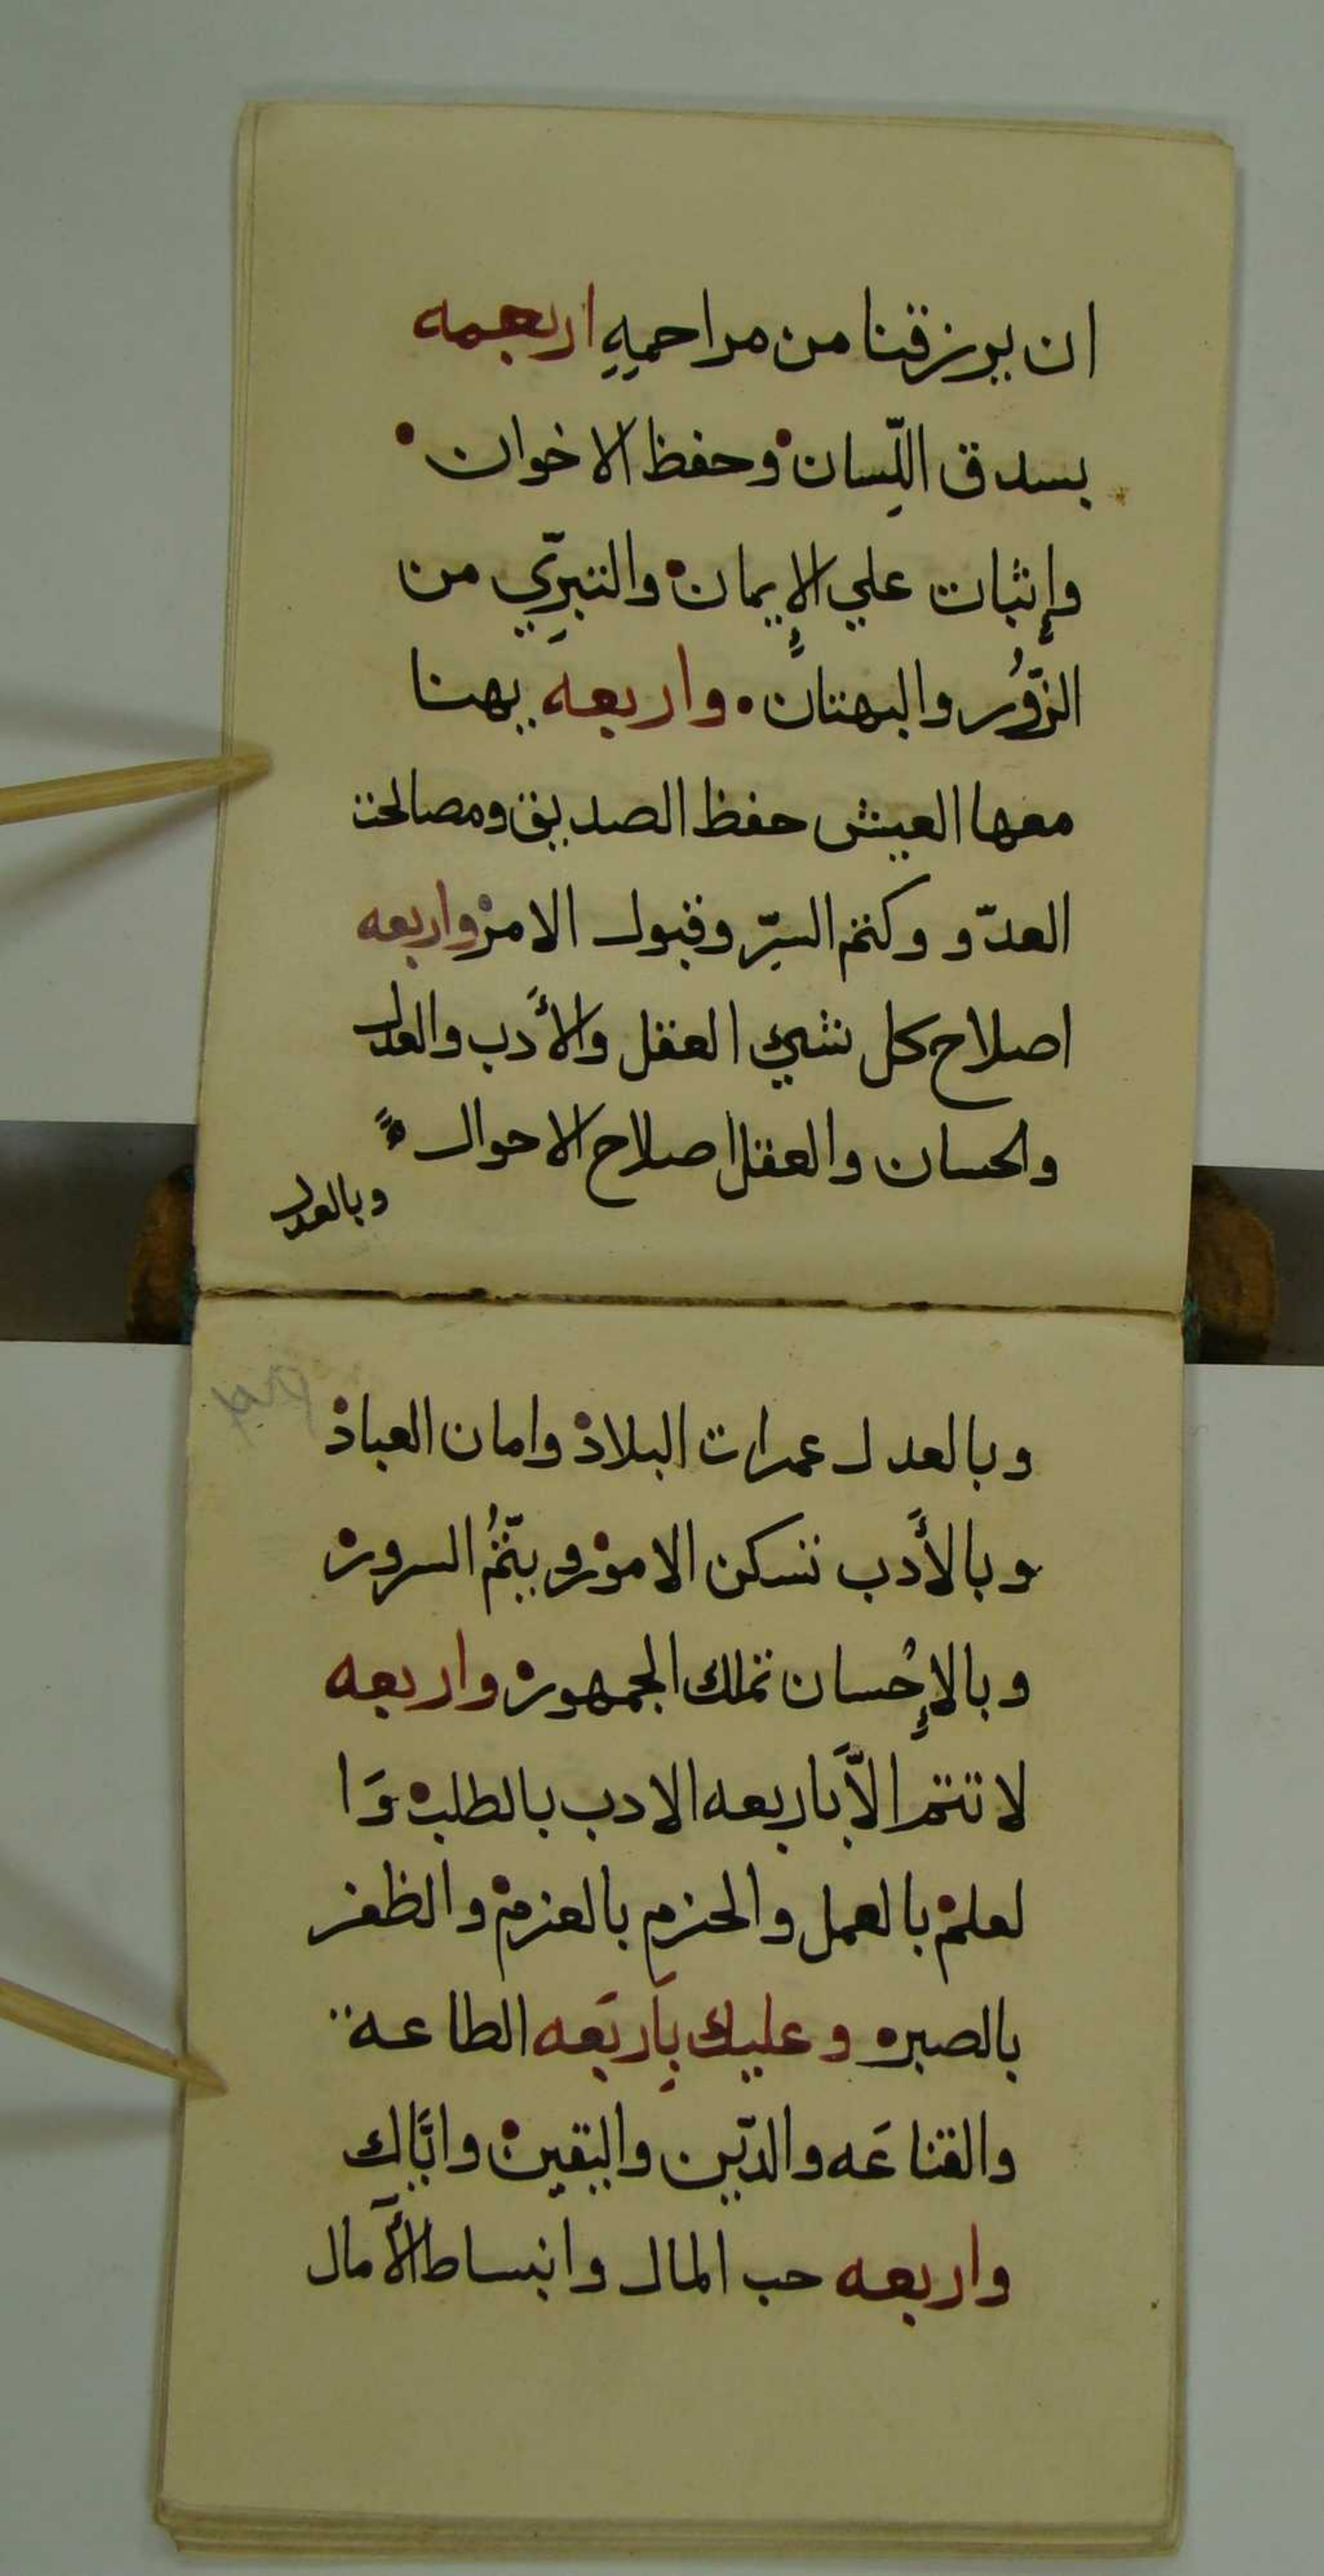 ان يرزقنا من مراحمهِ اربعه
بسدق اللّسان وحفظ الاخوان
وإثبات علي الإيمان والتبرّي من
الزّوُر والبهتان واربعه يهنا
معها العيش حفظ الصديق ومصالحت
العدّو وكتم السرّ وقبول الامر واربعه
اصلاح كل شيئ العقل والأدب والعدل
ولحسان والعقل اصلاح الاحوال
وبالعدل
وبالعدل عمرات البلاد وامان العباد
وبالأدب تسكن الامور ويتّمُ السرور
وبالإحسان تملك الجمهور واربعه
لا تتم الاّ باربعه الادب بالطلب وَا
لعلم بالعمل والحزم بالعزم والظفر
بالصبر وعليك بِاَربَعه الطاعه
والقناعَه والدّين واليقين وايّاك
واربعه حب المال وانبساط الآمال